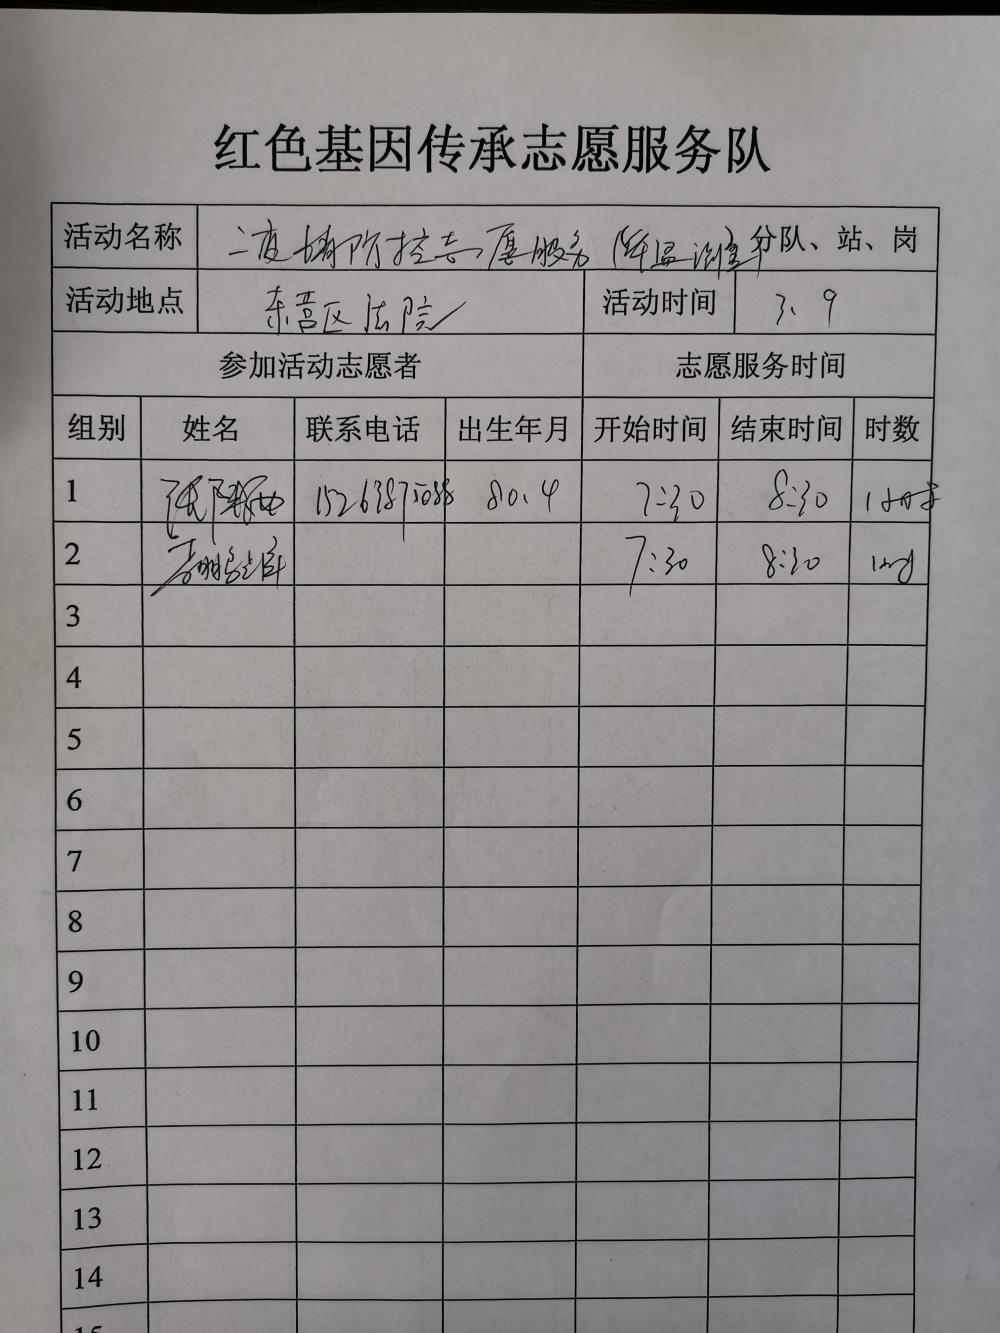 红色基因传承志愿服务队
活动名称 疫情防控志愿服务（体温测量） 分队、站、岗
活动地点 东营区法院 活动时间 3、9
参加活动志愿者 志愿服务时间
组别 姓名 联系电话 出生年月 开始时间 结束时间 时数
1 80.4 7:30 8:30 1小时
2 7:30 8:30
3
4
5
6
7
8
9
10
11
12
13
14
15